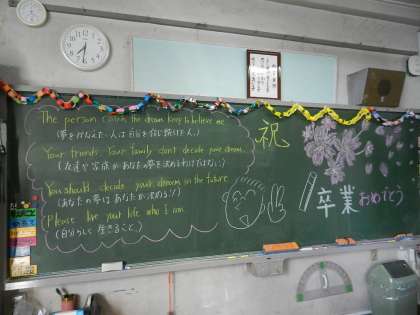 The person catch the dream keep to believe me
(夢をかなえた人は自分を信じ続けた人。)
Your friends Your family don't decide your dream.
(友達や家族があなたの夢を決めるわけではない。)
You should decide your dream in the future
(あなたの夢はあなたが決める!!)
Please live your life who I am.
(自分らしく生きること。)
祝
卒業
おめでとう